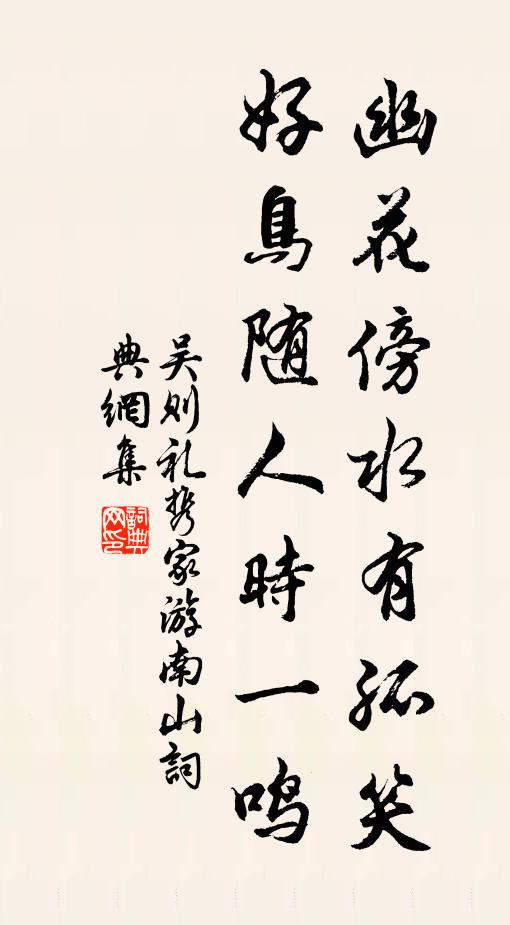 幽花傍水有孤笑
好鳥随人時一鸣
吴则礼携家游南山詞
典網集
詞典网印